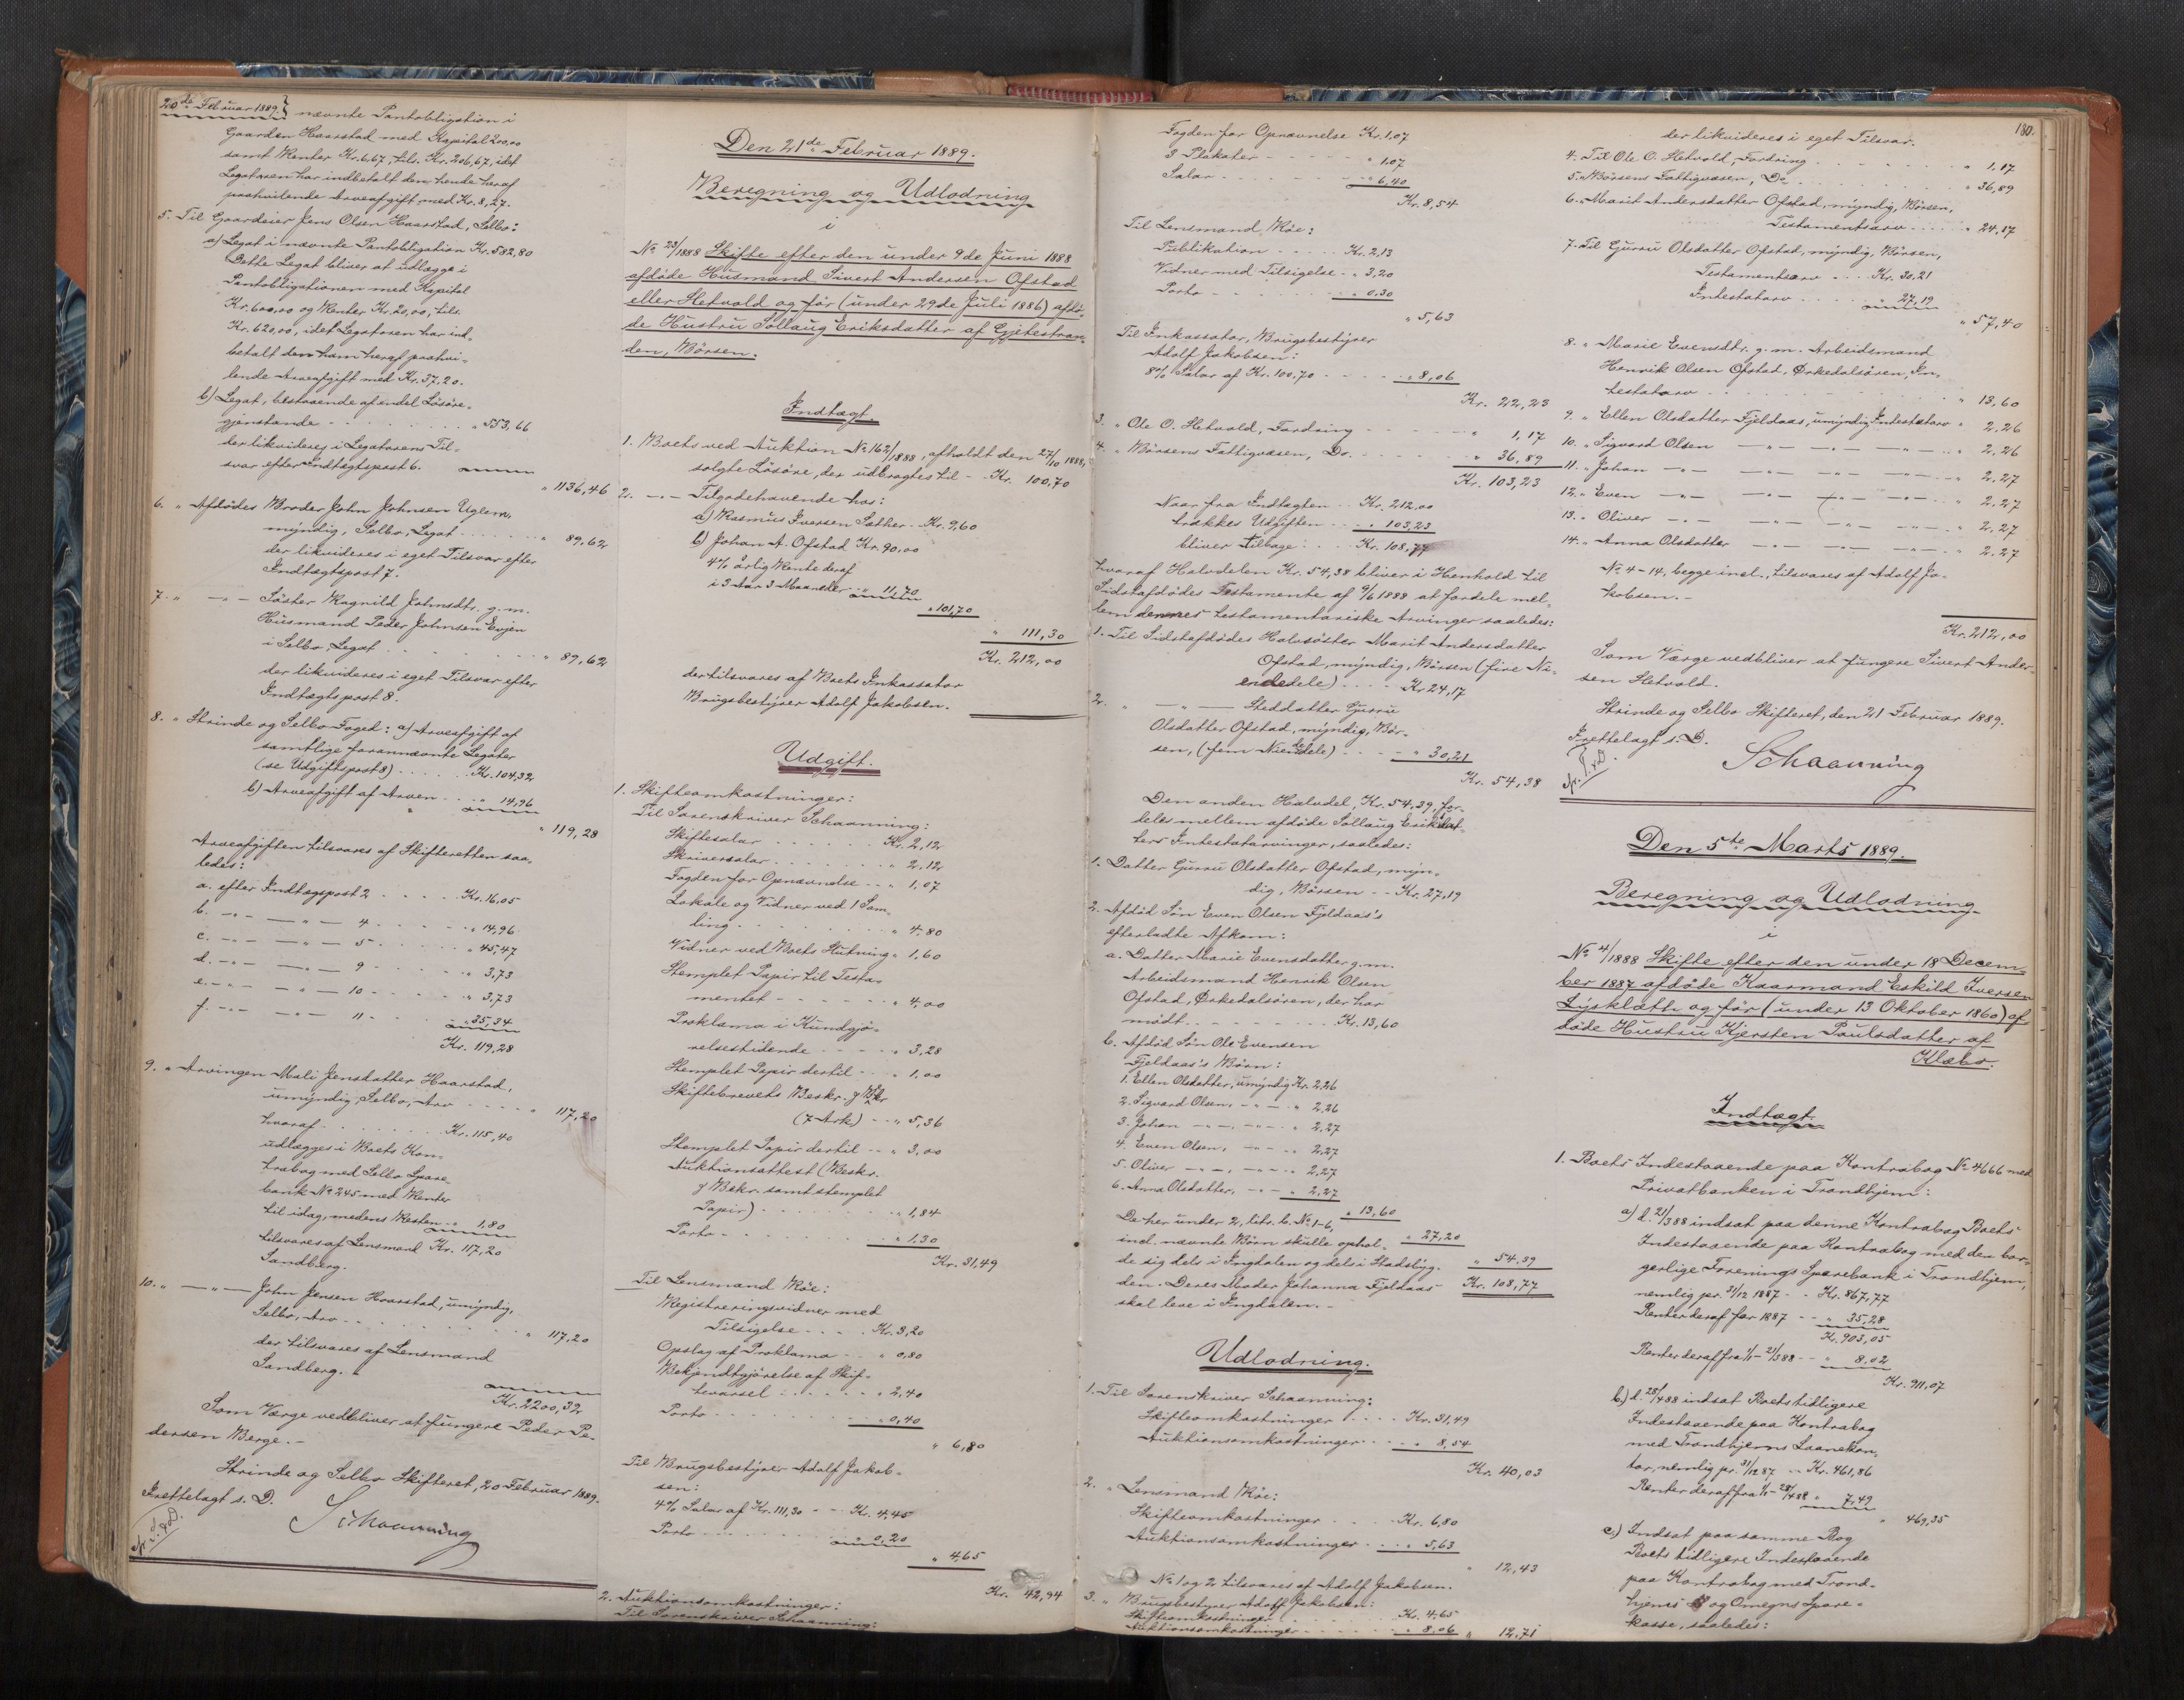 20de Februar 1889.
nævnte Pantobligation i
Gaarden Haarstad med Kapital 200,00
samt Renter Kr. 6,67, tils. Kr. 206,67, idet
Legataren har indbetalt den hende heraf
paahvilende Arveafgift med Kr. 8,27.
5. Til Gaardeier Jens Olsen Haarstad, Selbo:
a) Legat i nævnte Pantobligation Kr. 582,80
Dette Legat bliver at udlægge i
Pantobligationen med Kapital
Kr. 600,00 og Renter Kr. 20,00, tils.
Kr. 620,00, idet Legataren har ind-
betalt den ham heraf paahvi-
lende Arveafgift med Kr. 37,20.
b) Legat, bestaaende af endel Løsøre-
gjenstande " 553,66
der likvideres i Legatarens Til-
svar efter Indtægtspost 6.
" 1136,46
6. " Afdødes Broder John Johnsen Uglem,
myndig, Selbo, Legat " 89,62
der likvideres i eget Tilsvar efter
Indtægtspost 7.
7. " —"— Søster Ragnild Johnsdtr. g.m.
Husmand Peder Johnsen Evjen
i Selbo, Legat " 89,62
der likvideres i eget Tilsvar efter
Indtægtspost 8.
8. " Strinde og Selbo Foged: a) Arveafgift af
samtlige forannævnte Legater
(se Udgiftspost 8) Kr. 104,32
b) Arveafgift af Arven " 14,96
" 119,28
Arveafgiften tilsvares af Skifteretten saa-
ledes:
a. efter Indtægspost 2 Kr. 16,05
b. —"— —"— 4 " 14,96
c. —"— —"— 5 " 45,47
d. —"— —"— 9 " 3,73
e. —"— —"— 10 " 3,73
f. —"— —"— 11 " 35,34
Kr. 119,28
9. " Arvingen Mali Jensdatter Haarstad,
umyndig, Selbo, Arv " 117,20
hvoraf Kr. 115,40
udlægges i Boets Kon-
trabog med Selbo Spare-
bank No 245 med Renter
til idag, medens Resten " 1,80
tilsvares af Lensmand Kr. 117,20
Sandberg.
10. " —"— John Jensen Haarstad, umyndig,
Selbo, Arv " 117,20
der tilsvares af Lensmand
Sandberg.
Kr. 2200,32
Som Værge vedbliver at fungere Peder Pe-
dersen Berge.-
Strinde og Selbo Skifteret, 20 Februar 1889.
Frettelagt s. D.
Schaanning
Den 21de Februar 1889.
Beregning og Udlodning
i
No 23/1888 Skifte efter den under 9de Juni 1888
afdøde Husmand Sivert Andersen Ofstad
eller Hetvold og før (under 29de Juli 1886) afdø-
de Hustru Sollaug Eriksdatter af Gjetestran-
den, Børsen.
Indtægt
1. Boets ved Auktion No 162/1888, afholdt den 27/10 1888,
solgte Løsøre, der udbragtes til Kr. 100,70
2. —"— Tilgodehavende hos:
a) Rasmus Iversen Sæther Kr. 9,60
b) Johan A. Ofstad Kr. 90,00
4% årlig Rente deraf
i 3 Aar 3 Maaneder " 11,70
" 101,70
" 111,30
Kr. 212,00
der tilsvares af Boets Inkassator
Brugsbestyrer Adolf Jakobsen.
Udgift.
1. Skifteomkostninger:
Til Sorenskriver Schaanning:
Skiftesalar Kr. 2,12
Skriversalar " 2,12
Fogden for Opnævnelse " 1,07
Lokale og Vidner ved 1 Sam-
ling " 4,80
Vidner ved Boets Slutning " 1,60
Stemplet Papir til Testa-
mentet " 4,00
Proklama i Kundgjø-
relsestidende " 3,28
Stemplet Papir dertil " 1,00
Skiftebrevets Beskr. &
(7 Ark) " 5,36
Stemplet Papir dertil " 3,00
Auktionsattest (Beskr.
& Bekr. samt stemplet
Papir) " 1,84
Porto " 1,30
Kr. 31,49
Til Lensmand Röe:
Registreringsvidner med
Tilsigelse Kr. 3,20
Opslag af Proklama " 0,80
Bekjendtgjørelse af Skif-
tevarsel " 2,40
Porto " 0,40
" 6,80
Til Brugsbestyrer Adolf Jakob-
sen:
4% Salar af Kr. 111,30 Kr. 4,45
Porto " 0,20
" 4,65
Kr. 42,94
2. Auktionsomkostninger:
Til Sorenskriver Schaanning:
Fogden for Opnævnelse Kr. 1,07
3 Plakater " 1,07
Salar " 6,40
Kr. 8,54
Til Lensmand Röe:
Publikation Kr. 2,13
Vidner med Tilsigelse " 3,20
Porto " 0,30
" 5,63
Til Inkassator, Brugsbestyrer
Adolf Jakobsen:
8% Salar af Kr. 100,70 " 8,06
Kr. 22,23
3. " Ole O. Hetvold, Fordring " 1,17
4. " Børsens Fattigvæsen, Do. " 36,89
Kr. 103,23
Naar fra Indtægten Kr. 212,00
trækkes Udgiften " 103,23
bliver tilbage: Kr. 108,77
hvoraf Halvdelen Kr. 54,38 bliver i Henhold til
Sidstafdødes Testamente af 9/6 1888 at fordele mel-
lem dennes testamentariske Arvinger saaledes:
1. Til Sidstafdødes Halvsøster Marit Andersdatter
Ofstad, myndig, Børsen (fire Ni-
endedele) Kr. 24,17
2. " —"— Steddatter Gjurru
Olsdatter Ofstad, myndig, Bør-
sen, (fem Niendedele) " 30,21
Kr. 54,38
Den anden Halvdel, Kr. 54,39, for-
deles mellem afdøde Sollaug Eriksdat-
ters Intestatarvinger, saaledes:
1. Datter Gjurru Olsdatter Ofstad, myn-
dig, Börsen Kr. 27,19
2. Afdød Søn Even Olsen Fjeldaas's
efterladte Afkom:
a. Datter Marie Evensdatter g.m.
Arbeidsmand Henrik Olsen
Ofstad, Ørkedalsøren, der har
mødt Kr. 13,60
b. Afdød Søn Ole Evensen
Fjeldaas's Børn:
1. Ellen Olsdatter, umyndig Kr. 2,26
2. Sigvard Olsen, —"— " 2,26
3. Johan —"—, —"— " 2,27
4. Even Olsen, —"— " 2,27
5. Oliver —"—, —"— " 2,27
6. Anna Olsdatter, —"— " 2,27
" 13,60
De her under 2, litr. b. No 1-6,
incl. nævnte Børn skulle ophol- " 27,20
de sig dels i Ingdalen og dels i Stadsbyg- " 54,39
den. Deres Moder Johanna Fjeldaas Kr. 108,77
skal leve i Ingdalen.-
Udlodning.
1. Til Sorenskriver Schaanning:
Skifteomkostninger Kr. 31,49
Auktionsomkostninger " 8,54
Kr. 40,03
2. " Lensmand Röe:
Skifteomkostninger Kr. 6,80
Auktionsomkostninger " 5,63
" 12,43
No 1 og 2 tilsvares af Adolf Jakobsen.
3. " Brugsbestyrer Adolf Jakobsen:
Skifteomkostninger Kr. 4,65
Auktionsomkostninger " 8,06 " 12,71
180.
der likvideres i eget Tilsvar.
4. Til Ole O. Hetvold, Fordring " 1,17
5. " Börsens Fattigvæsen, Do " 36,89
6. " Marit Andersdatter Ofstad, myndig, Börsen,
Testamentsarv " 24,17
7. Til Gjurru Olsdatter Ofstad, myndig, Børsen,
Testamentsarv Kr. 30,21
Intestatarv " 27,19
" 57,40
8. " Marie Evensdtr. g.m. Arbeidsmand
Henrik Olsen Ofstad, Ørkedalsøren, In-
testatarv " 13,60
9. " Ellen Olsdatter Fjeldaas, umyndig, Intestatarv " 2,26
10. " Sigvard Olsen —"— —"— —"— " 2,26
11. " Johan —"— —"— —"— —"— " 2,27
12. " Even —"— —"— —"— —"— " 2,27
13. " Oliver —"— —"— —"— —"— " 2,27
14. " Anna Olsdatter —"— —"— —"— " 2,27
No 4-14, begge incl., tilsvares af Adolf Ja-
kobsen.-
Kr. 212,00
Som Værge vedbliver at fungere Sivert Ander-
sen Hetvold.
Strinde og Selbo Skifteret, den 21 Februar 1889.
Frettelagt s. D.
Schaanning
Den 5te Marts 1889.
Beregning og Udlodning
i
No 4/1888 Skifte efter den under 18 Decem-
ber 1887 afdøde Kaarmand Eskild Iversen
Lysklætt og før (under 13 Oktober 1860) af-
døde Hustru Kjersten Paulsdatter af
Klæbo.
Indtægt
1. Boets Indestaaende paa Kontrabog No 4666 med
Privatbanken i Trondhjem:
a) d. 21/3 88 indsat paa denne Kontrabog Boets
Indestaaende paa Kontrabog med den bor-
gerlige Forenings Sparebank i Trondhjem,
nemlig pr. 31/12 1887 Kr. 867,77
Renter deraf for 1887 " 35,28
Kr. 903,05
Renter deraf fra 1/1 - 21/3 88 " 8,02
Kr. 911,07
b) d. 28/4 88 indsat Boets tidligere
Indestaaende paa Kontrabog
med Trondhjems Laanekon-
tor, nemlig pr. 31/12 87 Kr. 461,86
Renter deraf fra 1/1 - 28/4 88 " 7,49
" 469,35
c.) Indsat paa samme Bog
Boets tidligere Indestaaende
paa Kontrabog med Trond-
hjems og Omegns Spare-
kasse, saaledes: